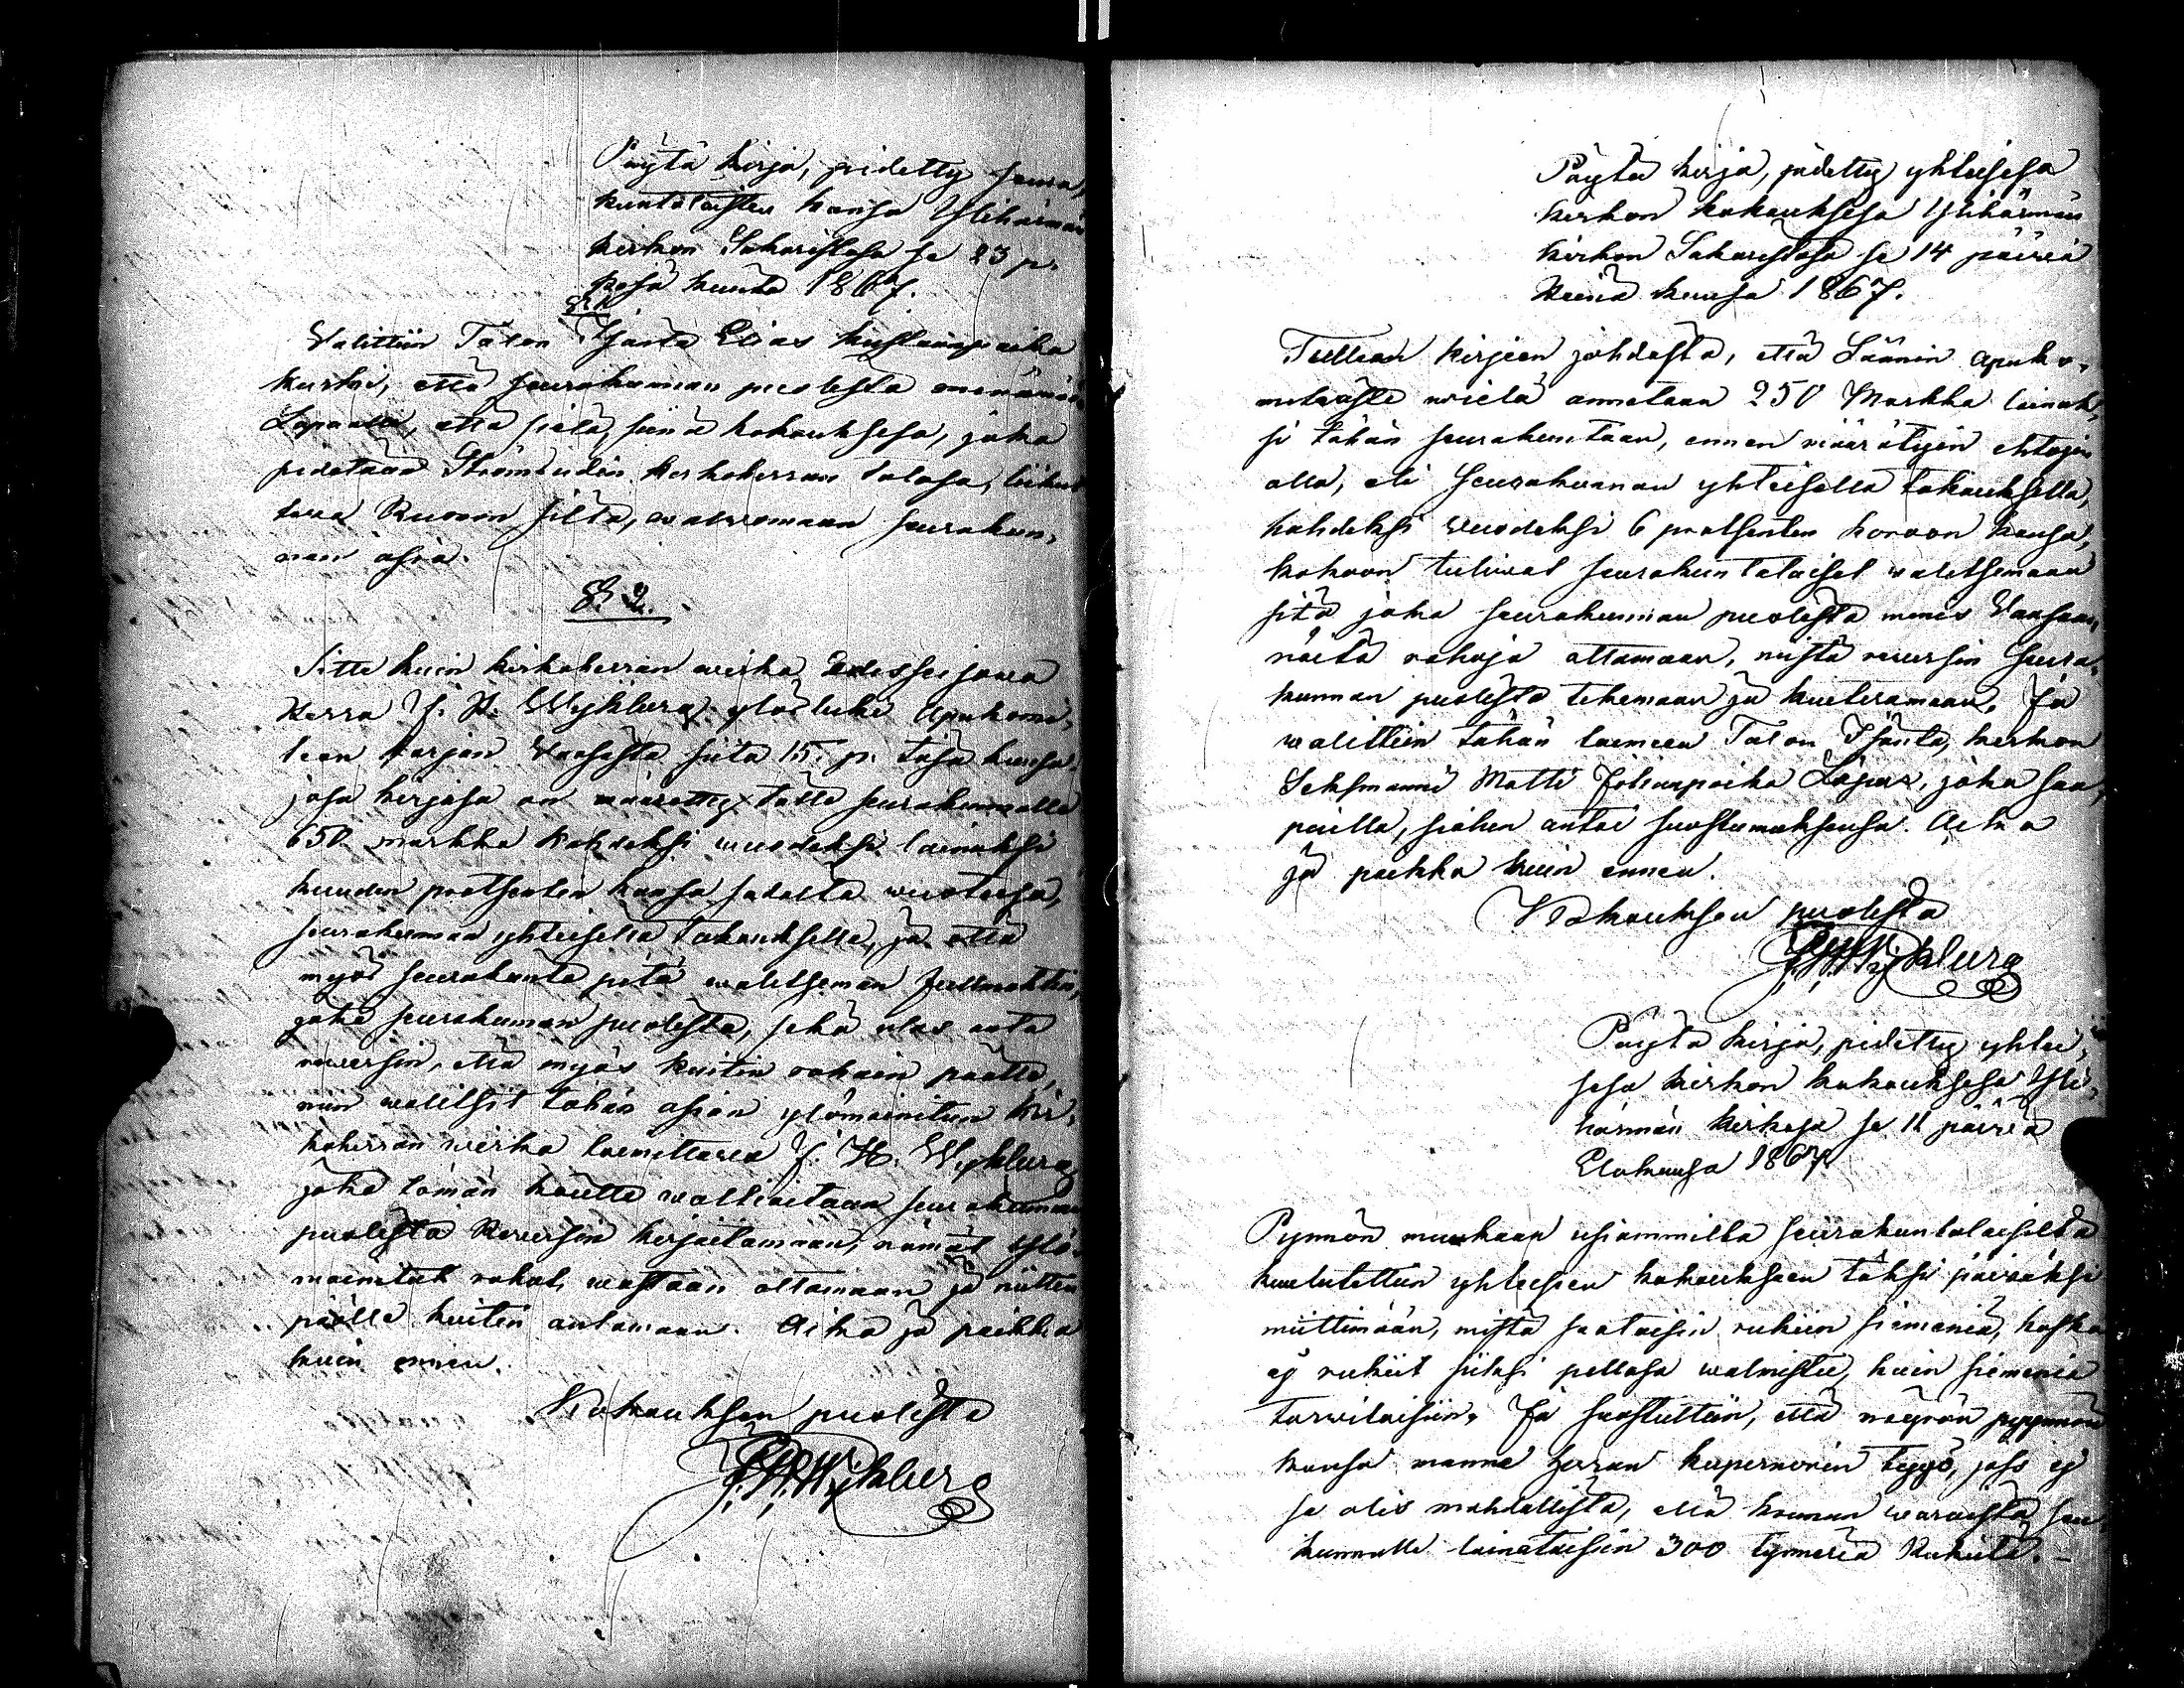 Pöytä kirja, pidetty seura,
kuntalaisten kansa Ylihärmän
kirkon Sakaristasa se 23 p.
kesä kuuta 1867.
§ 1.
Walittiin Talon Isäntä Elias Kustaanpoika
Kurki, että seurakunnan puolesta menemään
Lapualle, että sielä, siinä kokouksesa, joka
pidetään Strömbudin kirkoherran talosa, liikut
tava Ruoon siltä, walwomaan seurakun,
nan asia.
§. 2.
Sitte kuin kirkoherran wirka
Herra J. H. Wykberg ylösluki Apukomi,
tean kirjan Waasasta siitä 15. p. täsä kuusa,
josa kirjasa on määrätty tälle seurakunnalle
650 markka kahdeksi wuodeksi lainaksi
kuuden protsenten kansa sadalta wuoteesa,
seurakunnan yhteisellä takauksella, ja että
myös seurakunta pitä walitseman fullmahtin,
joka seurakunnan puolesta, sekä ulos anta
reversin, että myös kuitin rahain päälle,
niin walitsit tähän asian ylömainitun kir,
koherran wirka toimittaria J. H. Wykberg
joka tämän kautta waltuutaan seurakunnan
puolesta Reversin kirjoittamaan, nämät ylö,
mainitut rahat wastaan ottamaan ja niitten
päälle kuitin antamaan. Aika ja paikka
kuin ennen.
Kokouksen puolesta
J. H. Wykberg
Pöytä kirja, pidetty yhteisesä
kirkon kokouksesa Ylihärmän
kirkon Sakaristasa se 14 päivä
Heinä kuusa 1867.
Tullean kirjeen johdosta, että Läänin apuko,
miteästä wielä annetaan 250 Markka lainak,
si tähän seurakuntaan, ennen määrätyin ehtojen
alla, eli Seurakunnan yhteisellä takauksella,
kahdeksi wuodeksi 6 protsenten koroon kansa,
kokoon tuliwat seurakuntalaiset walitsemaan
sitä joka seurakunnan puolesta menis Vaasaan,
näitä rahoja ottamaan, niistä reversin seura,
kunnan puolesta tekemään ja kuiteramaan. Ja
walittiin tähän toimeen Talon Isäntä, kirkon
Seksmanni Matti Juhanpoika Lapua, joka saa,
puilla, siihen antoi suostumuksensa. Aika
ja paikka kuin ennen.
Kokouksen puolesta
J. H. Wykberg
Pöytä kirja, pidetty yhtei,
sesä kirkon kokouksesa Yli,
härmän kirkosa se 11 päivä
Elokuusa 1867.
Pynnön muukaan usiammilta seurakuntalaisilta
kuulutettiin yhteisen kokouksen täksi päiwäksi
miittimään, mistä saataisiin rukiin siemeniä, koska
ej rukiit siiksi pellosa walmistu, kuin siemeniä
tarwitaisiin. Ja suostuttiin, että nöyrän pyynnön
kansa mennä herran kupernörin tygö, jos ej
se olis mahdollista, että kruunun waroista seura
kunnalle lainataisiin 300 tynneriä Rukiita.-